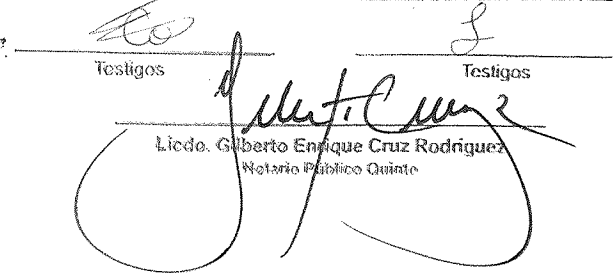 Testigos Testigos
Licdo. Gilberto Enrique Cruz Rodríguez
Notario Público Quinto